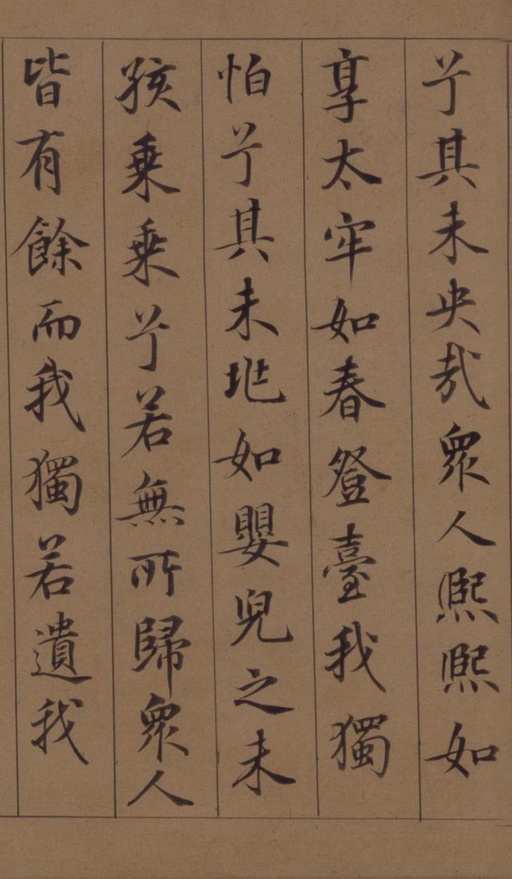 兮其未央哉衆人熙熙如
享太牢如春登臺我獨
怕兮其未兆如嬰兒之未
孩乘乘兮若無所歸衆人
皆有餘而我獨若遺我